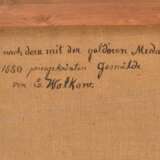 nach dem mit der goldenen Meda
1880 preisgekrönten Gemälde
von E. Wolkow.